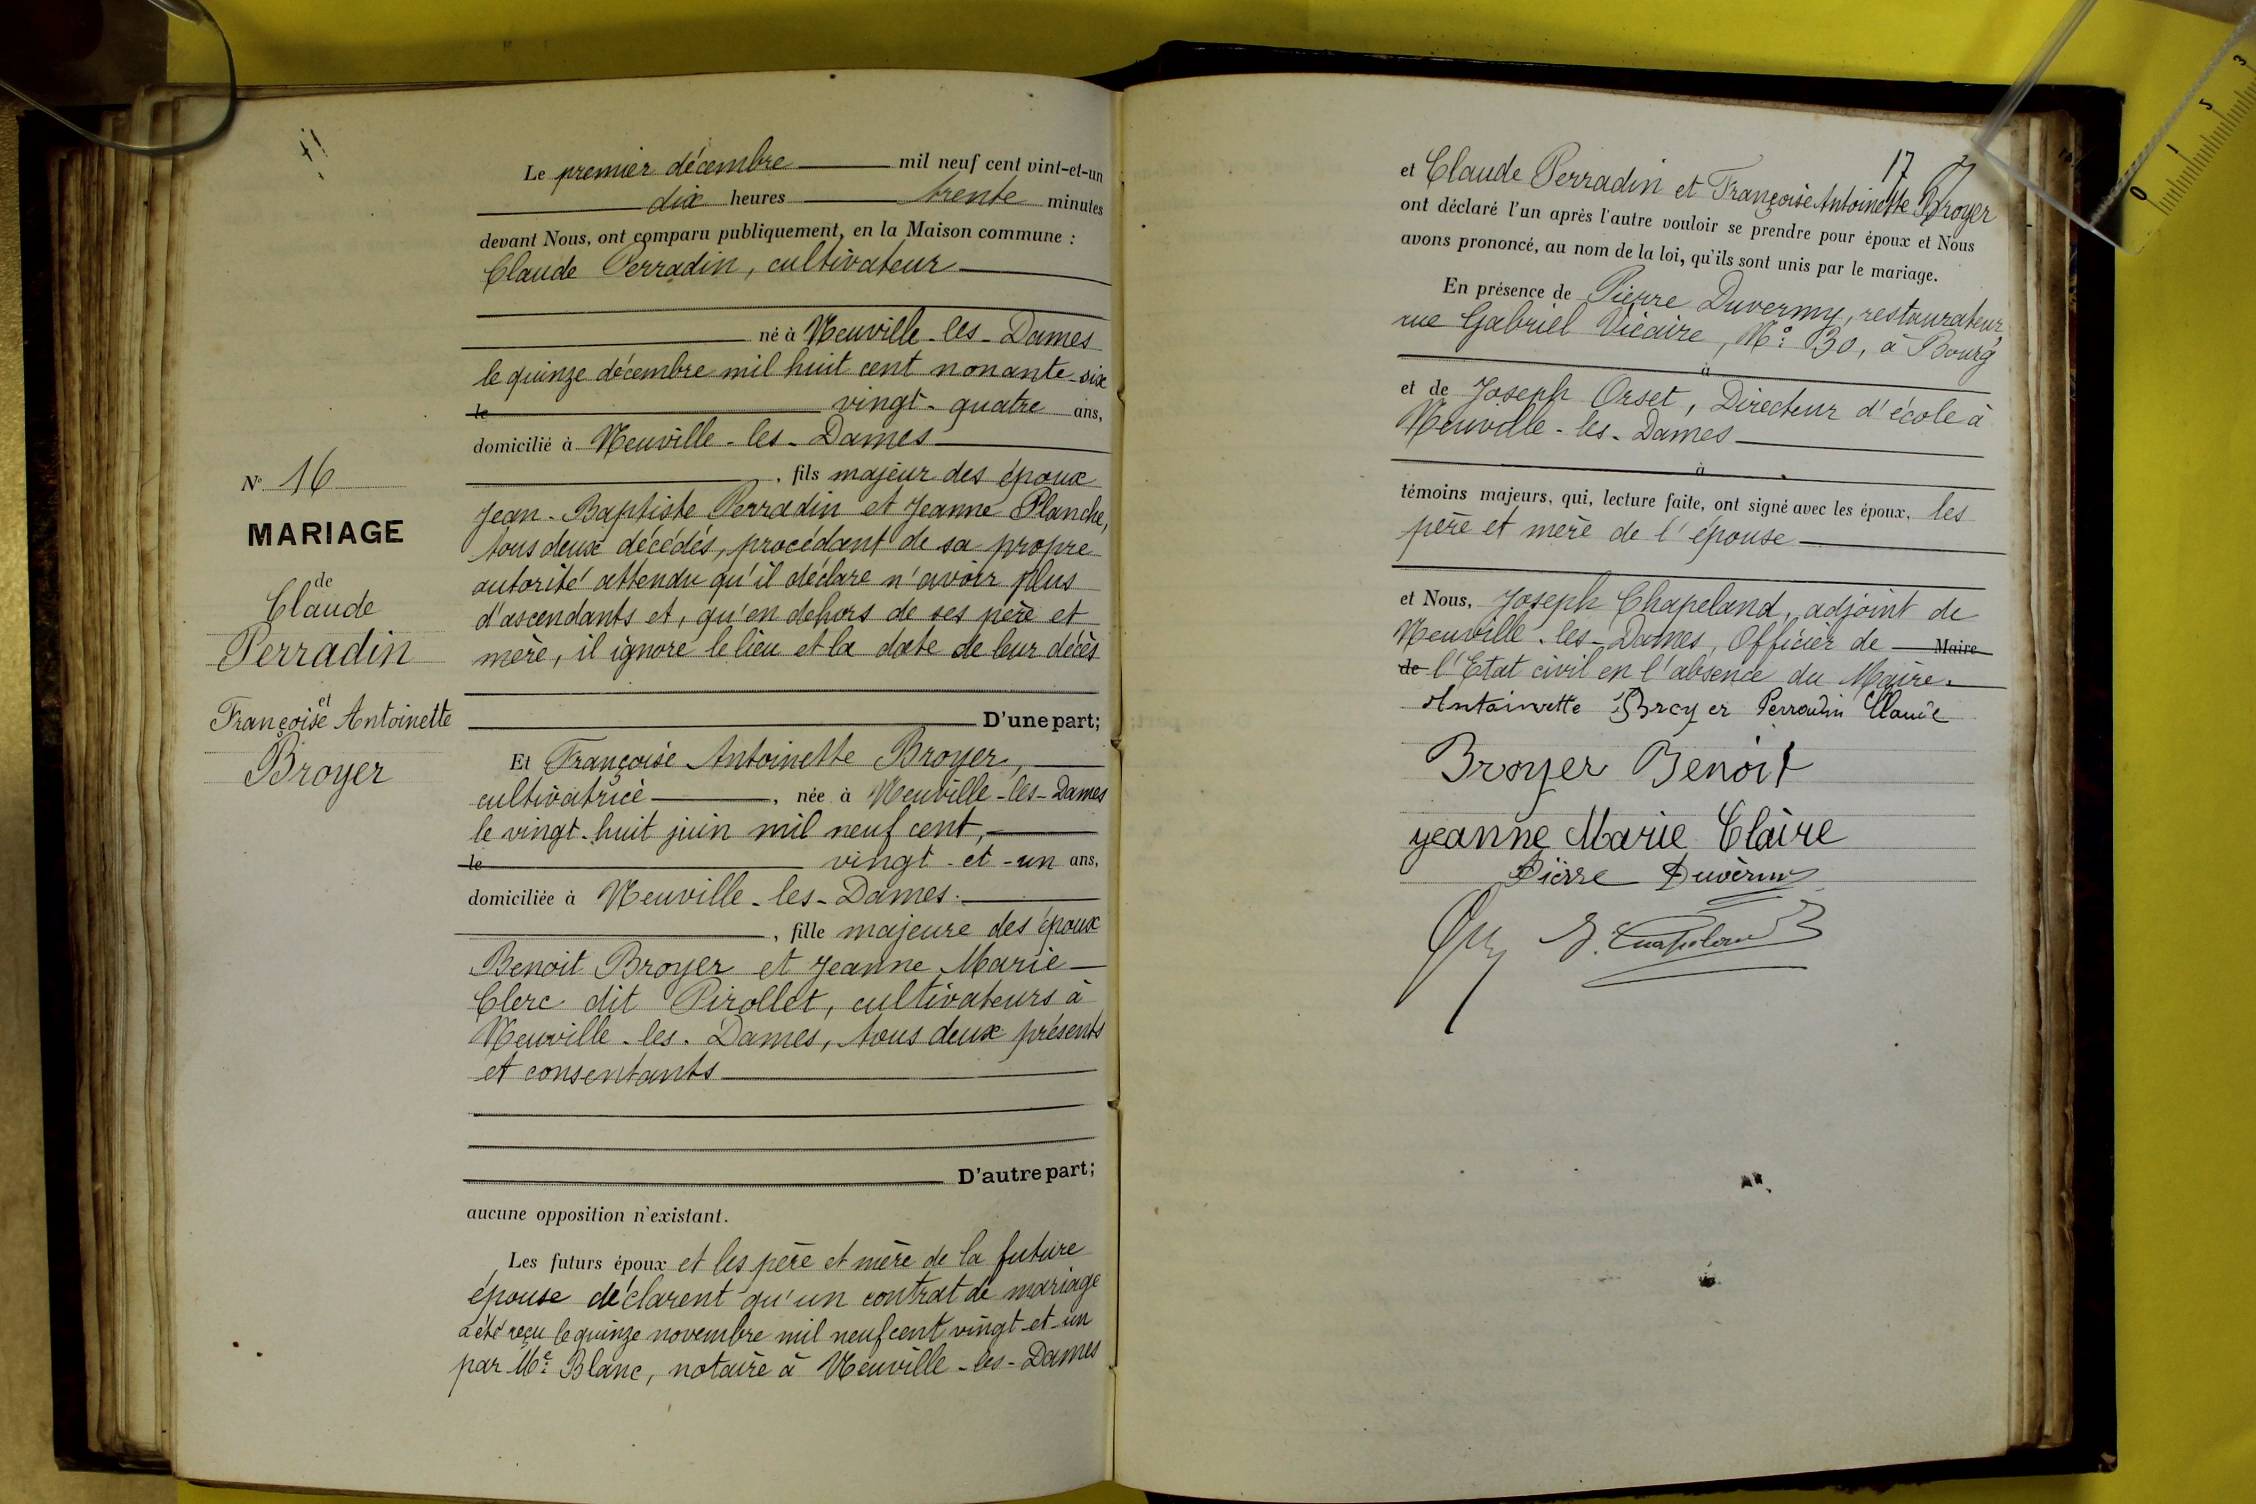 Le premier décembre mil neuf cent vint-et-un
dix heures trente minutes
devant Nous, ont comparu publiquement, en la Maison commune :
Claude Perradin, cultivateur
né à Neuville-les-Dames
le quinze décembre mil huit cent nonante-six
le vingt-quatre ans,
domicilié à Neuville-les-Dames
, fils majeur des époux
Jean-Baptiste Perradin et Jeanne Planche,
tous deux décédés, procédant de sa propre
autorité attendu qu'il déclare n'avoir plus
d'ascendants et, qu'en dehors de ses père et
mère, il ignore le lieu et la date de leur décès
D'une part;
N° 16
MARIAGE
de
Claude
Perradin
et
Françoise Antoinette
Broyer
Et Françoise Antoinette Broyer,
cultivatrice, née à Neuville-les-Dames
le vingt-huit juin mil neuf cent,
le vingt-et-un ans,
domiciliée à Neuville-les-Dames.
, fille majeure des époux
Benoit Broyer et Jeanne Marie
Clerc dit Pirollet, cultivateurs à
Neuville-les-Dames, tous deux présents
et consentants
D'autre part;
aucune opposition n'existant.
Les futurs époux et les père et mère de la future
épouse déclarent qu'un contrat de mariage
a été reçu le quinze novembre mil neuf cent vingt-et-un
par Me: Blanc, notaire à Neuville-les-Dames
17
et Claude Perradin et Françoise Antoinette Broyer
ont déclaré l'un après l'autre vouloir se prendre pour époux et Nous
avons prononcé, au nom de la loi, qu'ils sont unis par le mariage.
En présence de Pierre Duvermy, restaurateur,
rue Gabriel Vicaire, N°: 30, à Bourg
à
et de Joseph Orset, Directeur d'école à
Neuville-les-Dames
à
témoins majeurs, qui, lecture faite, ont signé avec les époux, les
père et mère de l'épouse
et Nous, Joseph Chapeland, adjoint de
Neuville-les-Dames, Officier de Maire
de l'Etat civil en l'absence du Maire.
Antoinette Broyer Perradin Claude
Broyer Benoit
Jeanne Marie Claire
Pierre Duvermy
J. Chapeland
0 1 2 3